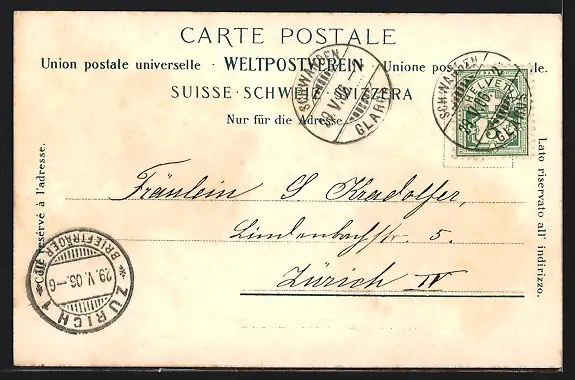 CARTE POSTALE
Union postale universelle · WELTPOSTVEREIN · Unione postale
SUISSE · SCHWEIZ · SVIZZERA
Nur für die Adresse.
SCHWANDEN
GLARUS
SCHWANDEN
HELVETIA
Côté réservé à l'adresse.
Lato riservato all' indirizzo.
Fräulein S. Kradolfer,
Lindenbachstr. 5.
Zürich IV
ZÜRICH 1
BRIEFTRÄGER
29. V. 06.–6